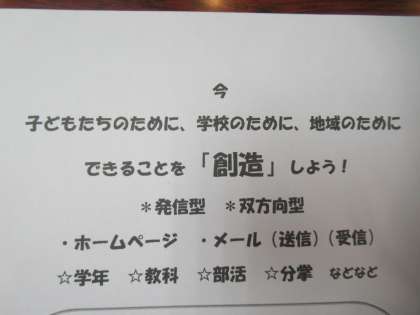 今
子どもたちのために、学校のために、地域のために
できることを「創造」しよう！
＊発信型　＊双方向型
・ホームページ　・メール（送信）（受信）
☆学年　☆教科　☆部活　☆分掌　などなど